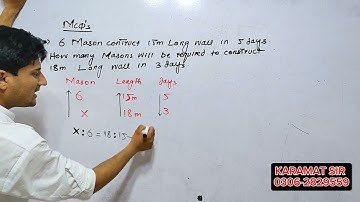 MCQ's
6 Mason construct 15m Long wall in 5 days.
How many Masons will be required to construct
18m Long wall in 3 days.
Mason Length days
6 15m 5
x 18m 3
x : 6 = 18 : 15
KARAMAT SIR
0306-2829559